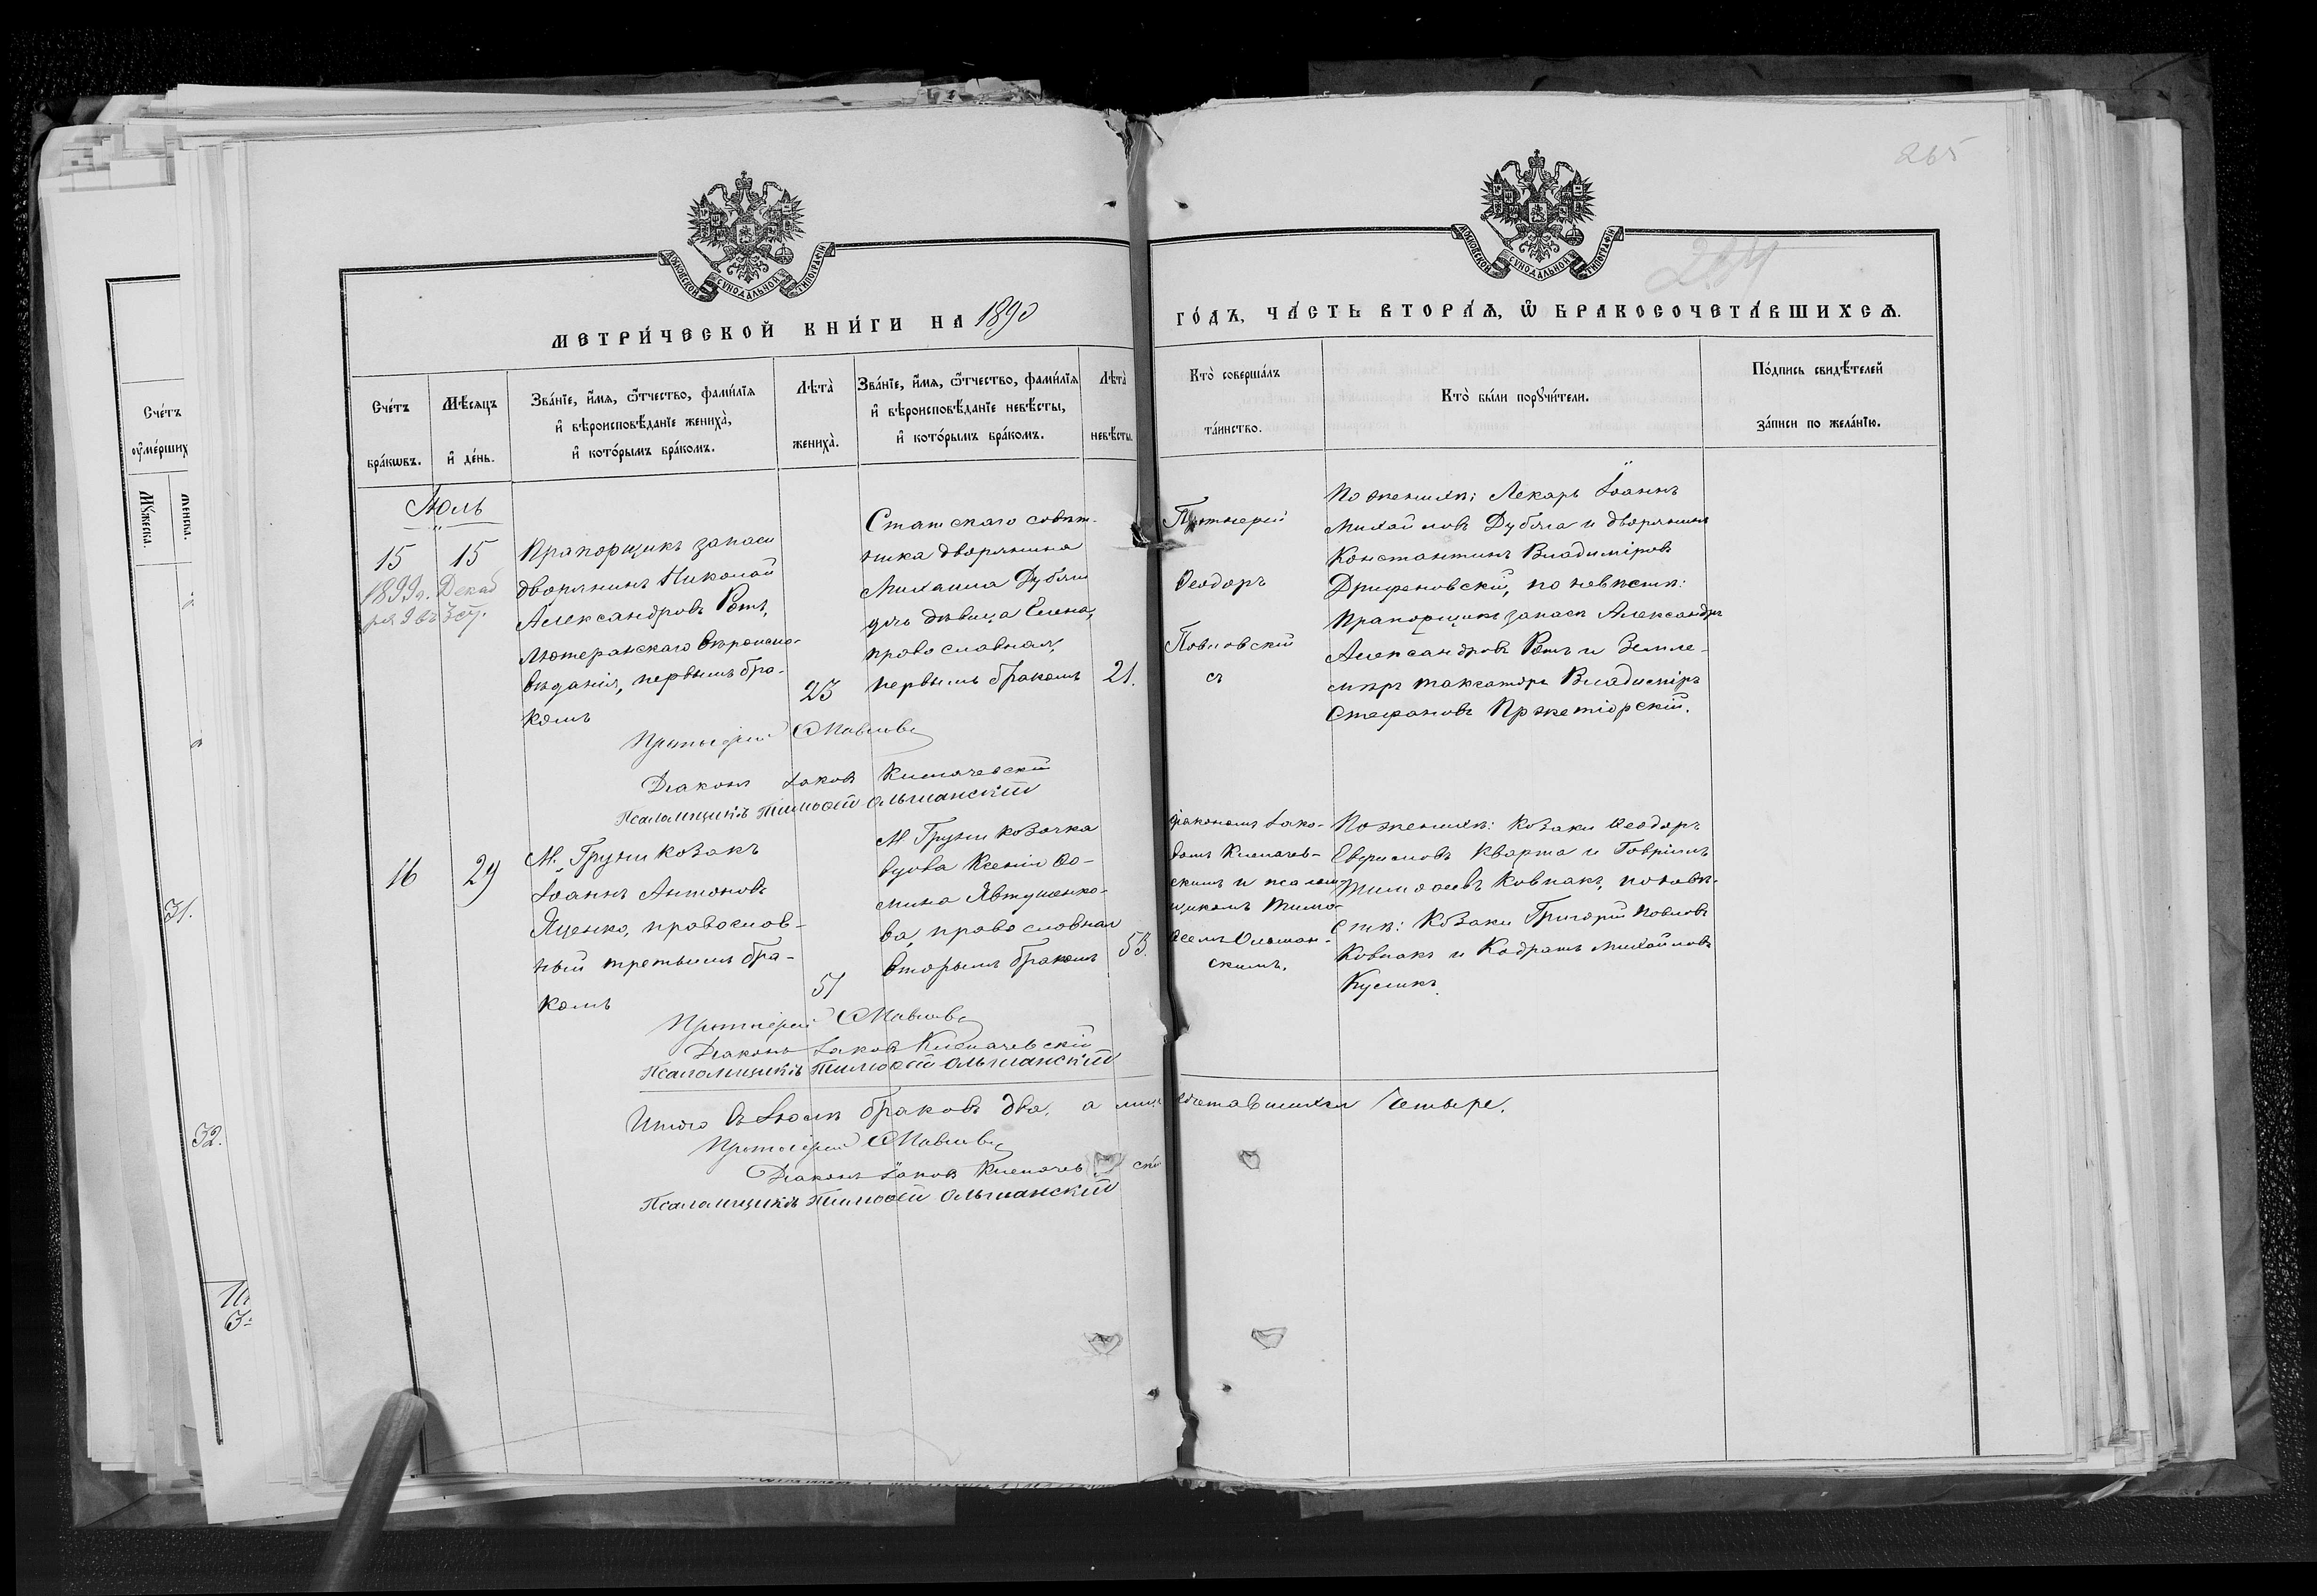 265
264
МОСКОВСКОЙ СѴНОДАЛЬНОЙ ТИПОГРАФІИ
МОСКОВСКОЙ СѴНОДАЛЬНОЙ ТИПОГРАФІИ
МЕТРИ́ЧЕСКОЙ КНИ́ГИ НА 1890
ГО́ДЪ, ЧА́СТЬ ВТОРА́Ѧ, Ѽ БРАКОСОЧЕТА́ВШИХСѦ.
Сче́тъ бра́кѡвъ.
Мѣ́сѧцъ и҆ де́нь.
Зва́нїе, и҆́мѧ, ѻ҆́тчество, фами́лїѧ и҆ вѣроисповѣ́данїе жениха̀, и҆ кото́рымъ бра́комъ.
Лѣта̀ жениха̀.
Зва́нїе, и҆́мѧ, ѻ҆́тчество, фами́лїѧ и҆ вѣроисповѣ́данїе невѣ́сты, и҆ кото́рымъ бра́комъ.
Лѣта̀ невѣ́сты.
Кто̀ соверша́лъ та́инство.
Кто̀ бы́ли порꙋчи́тели.
По́дпись свидѣ́телей за́писи по жела́нїю.
Сче́тъ
ᲂу҆ме́рших
Мꙋжеска.
Женска.
31.
32.
Іюль
15
15
1899г. Декаб
ря 9
Прапорщикъ запаса
дворянинъ Николай
Александровъ Ротъ,
Лютеранскаго вѣроиспо-
вѣданія, первымъ бра-
комъ
23
Статскаго совѣт-
ника дворянина
Михаила Дубяги
дочь дѣвица Елена,
православная,
первымъ бракомъ
21.
Протоіерей
Ѳеодоръ
Павловскій
съ
По женихѣ: Лекарь Іоаннъ
Михайловъ Дубяга и дворянинъ
Константинъ Владиміровъ
по невѣстѣ:
Прапорщикъ запаса Александръ
Александровъ Ротъ и Земле-
мѣръ таксаторъ Владиміръ
Стефановъ
Протоіерей
Діаконъ Іаковъ
Псаломщикъ Тимоѳей Ольшанскій
16
29
М. Груни козакъ
Іоаннъ Антоновъ
Яценко, православ-
ный третьимъ бра-
комъ
51
М. Груни козачка
вдова Ксенія Ѳо-
мина Явтушенко-
ва, православная
вторымъ бракомъ
53.
Діакономъ Іако-
вомъ
скимъ и псалом-
щикомъ Тимо-
ѳеемъ Ольшан-
скимъ.
По женихѣ: козаки Ѳеодоръ
Евфимовъ Кварта и Гавріилъ
Тимоѳеевъ Ковпакъ, по невѣ-
стѣ: козаки Григорій Павловъ
Ковпакъ и Кодратъ Михайловъ
Куликъ
Протоіерей
Діаконъ Іаковъ
Псаломщикъ Тимоѳей Ольшанскій
Итого въ Іюлѣ браковъ два, а лицъ сочетавшихся четыре.
Протоіерей
Діаконъ Іаковъ
Псаломщикъ Тимоѳей Ольшанскій